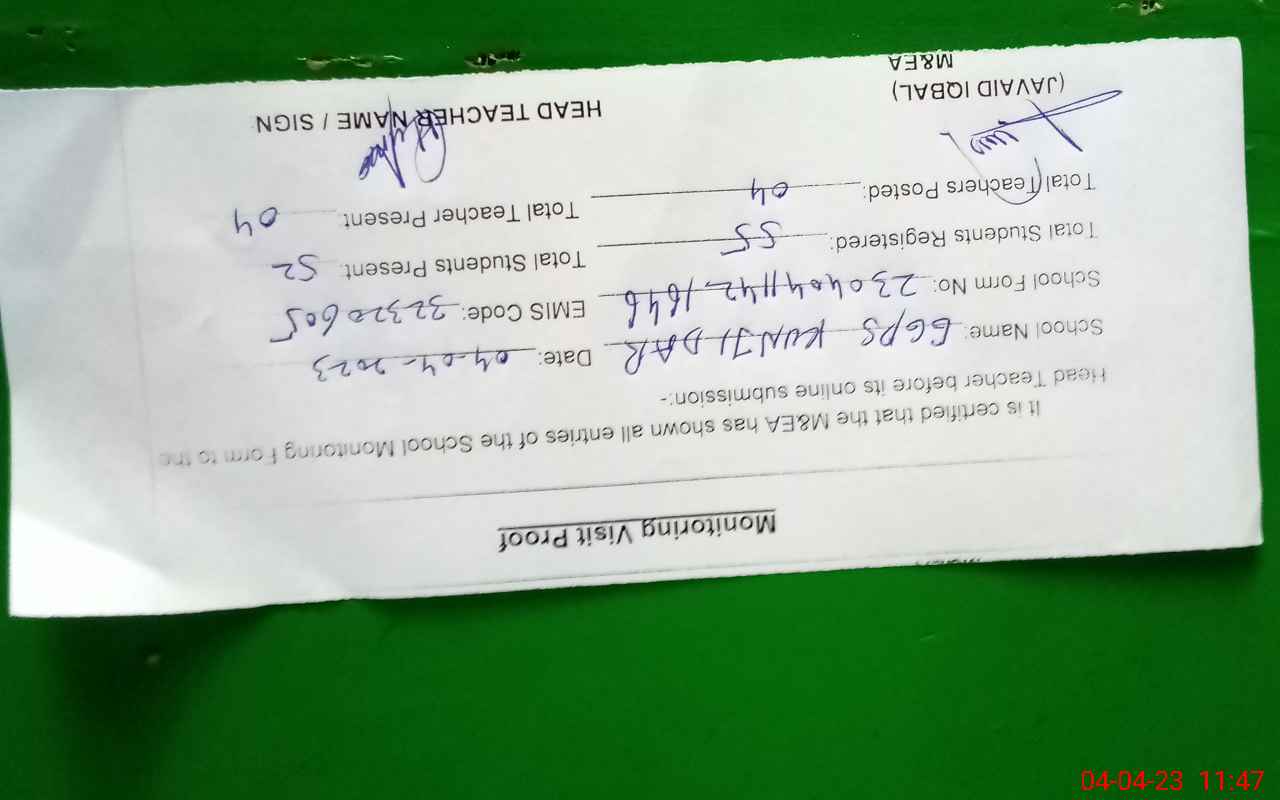 Monitoring Visit Proof
It is certified that the M&EA has shown all entries of the School Monitoring Form to the
Head Teacher before its online submission:-
School Name: GGPS KUNJI DAR Date: 04-04-2023
School Form No: 2304041142-1646 EMIS Code: 32320605
Total Students Registered: 55 Total Students Present: 52
Total Teachers Posted: 04 Total Teacher Present: 04
(JAVAID IQBAL) HEAD TEACHER NAME / SIGN
M&EA
04-04-23 11:47